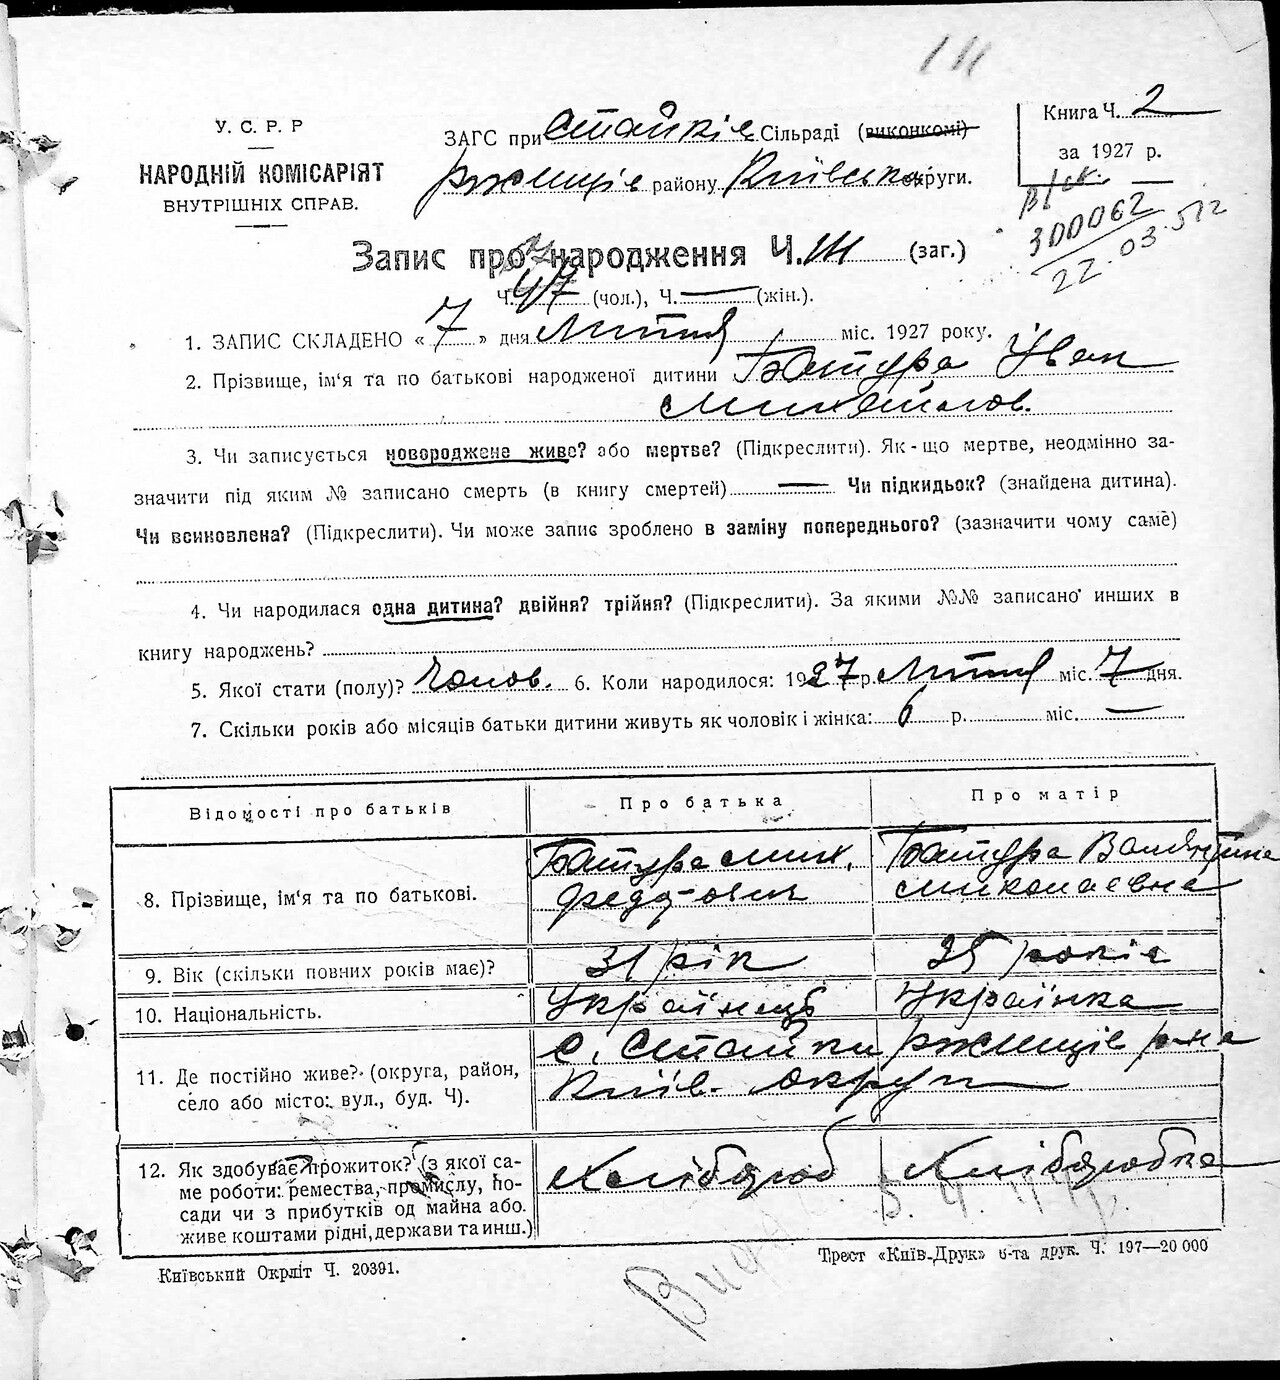 111
У. С. Р. Р
НАРОДНІЙ КОМІСАРІЯТ
ВНУТРІШНІХ СПРАВ.
ЗАГС при Стайків Сільраді (виконкомі)
Ржищів району Київська округи.
Книга Ч. 2
за 1927 р.
300062
22.03.512
Запис про народження Ч. 111 (заг.)
Ч. 47 (чол.), Ч. — (жін.).
1. ЗАПИС СКЛАДЕНО « 7 » дня Лютня міс. 1927 року.
2. Прізвище, ім'я та по батькові народженої дитини Батура Іван
Михайлов.
3. Чи записується новороджене живе? або мертве? (Підкреслити). Як-що мертве, неодмінно за-
значити під яким № записано смерть (в книгу смертей) — Чи підкидьок? (знайдена дитина).
Чи всиновлена? (Підкреслити). Чи може запис зроблено в заміну попереднього? (зазначити чому саме)
4. Чи народилася одна дитина? двійня? трійня? (Підкреслити). За якими №№ записано инших в
книгу народжень?
5. Якої стати (полу)? Чолов. 6. Коли народилося: 1927 р. Лютня міс. 7 дня.
7. Скільки років або місяців батьки дитини живуть як чоловік і жінка: 6 р. міс. —
Відомості про батьків Про батька Про матір
8. Прізвище, ім'я та по батькові. Батура Мих. Батура Валентина
Федотович Миколаевна
9. Вік (скільки повних років має)? 31 рік 25 років
10. Національність. Українець Українка
11. Де постійно живе? (округа, район, с. Стайки Ржищів р-на
село або місто: вул., буд. Ч). Київ. округи
12. Як здобуває прожиток? (з якої са- Хлібороб Хліборобка
ме роботи: ремества, промислу, по-
сади чи з прибутків од майна або
живе коштами рідні, держави та инш.)
Київський Окрліт Ч. 20391.
Трест «Київ-Друк» 6-та друк. Ч. 197—20 000